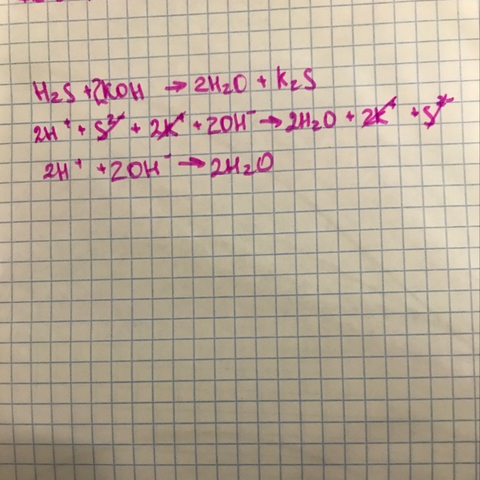 H₂S + 2KOH → 2H₂O + K₂S
2H⁺ + S²⁻ + 2K⁺ + 2OH⁻ → 2H₂O + 2K⁺ + S²⁻
2H⁺ + 2OH⁻ → 2H₂O